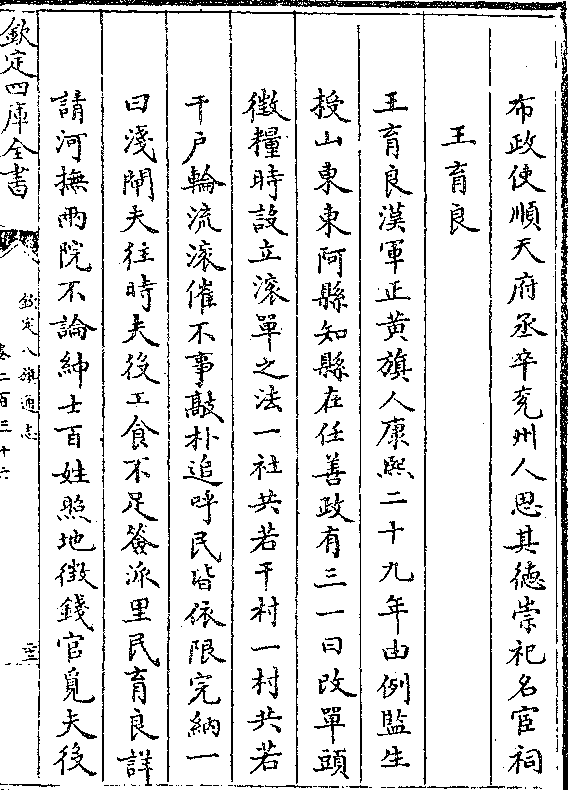 布政使順天府丞卒兖州人思其德崇祀名宦祠
王育良
王育良漢軍正黄旗人康熙二十九年由例監生
授山東東阿縣知縣在任善政有三一曰改單頭
徴糧時設立滚單之法一社共若干村一村共若
干户輪流滚催不事敲朴追呼民皆依限完納一
曰淺閘夫往時夫役工食不足簽派里民育良詳
請河撫兩院不論紳士百姓照地徴錢官覓夫役
欽定四庫全書
欽定八旗通志
卷二百三十六